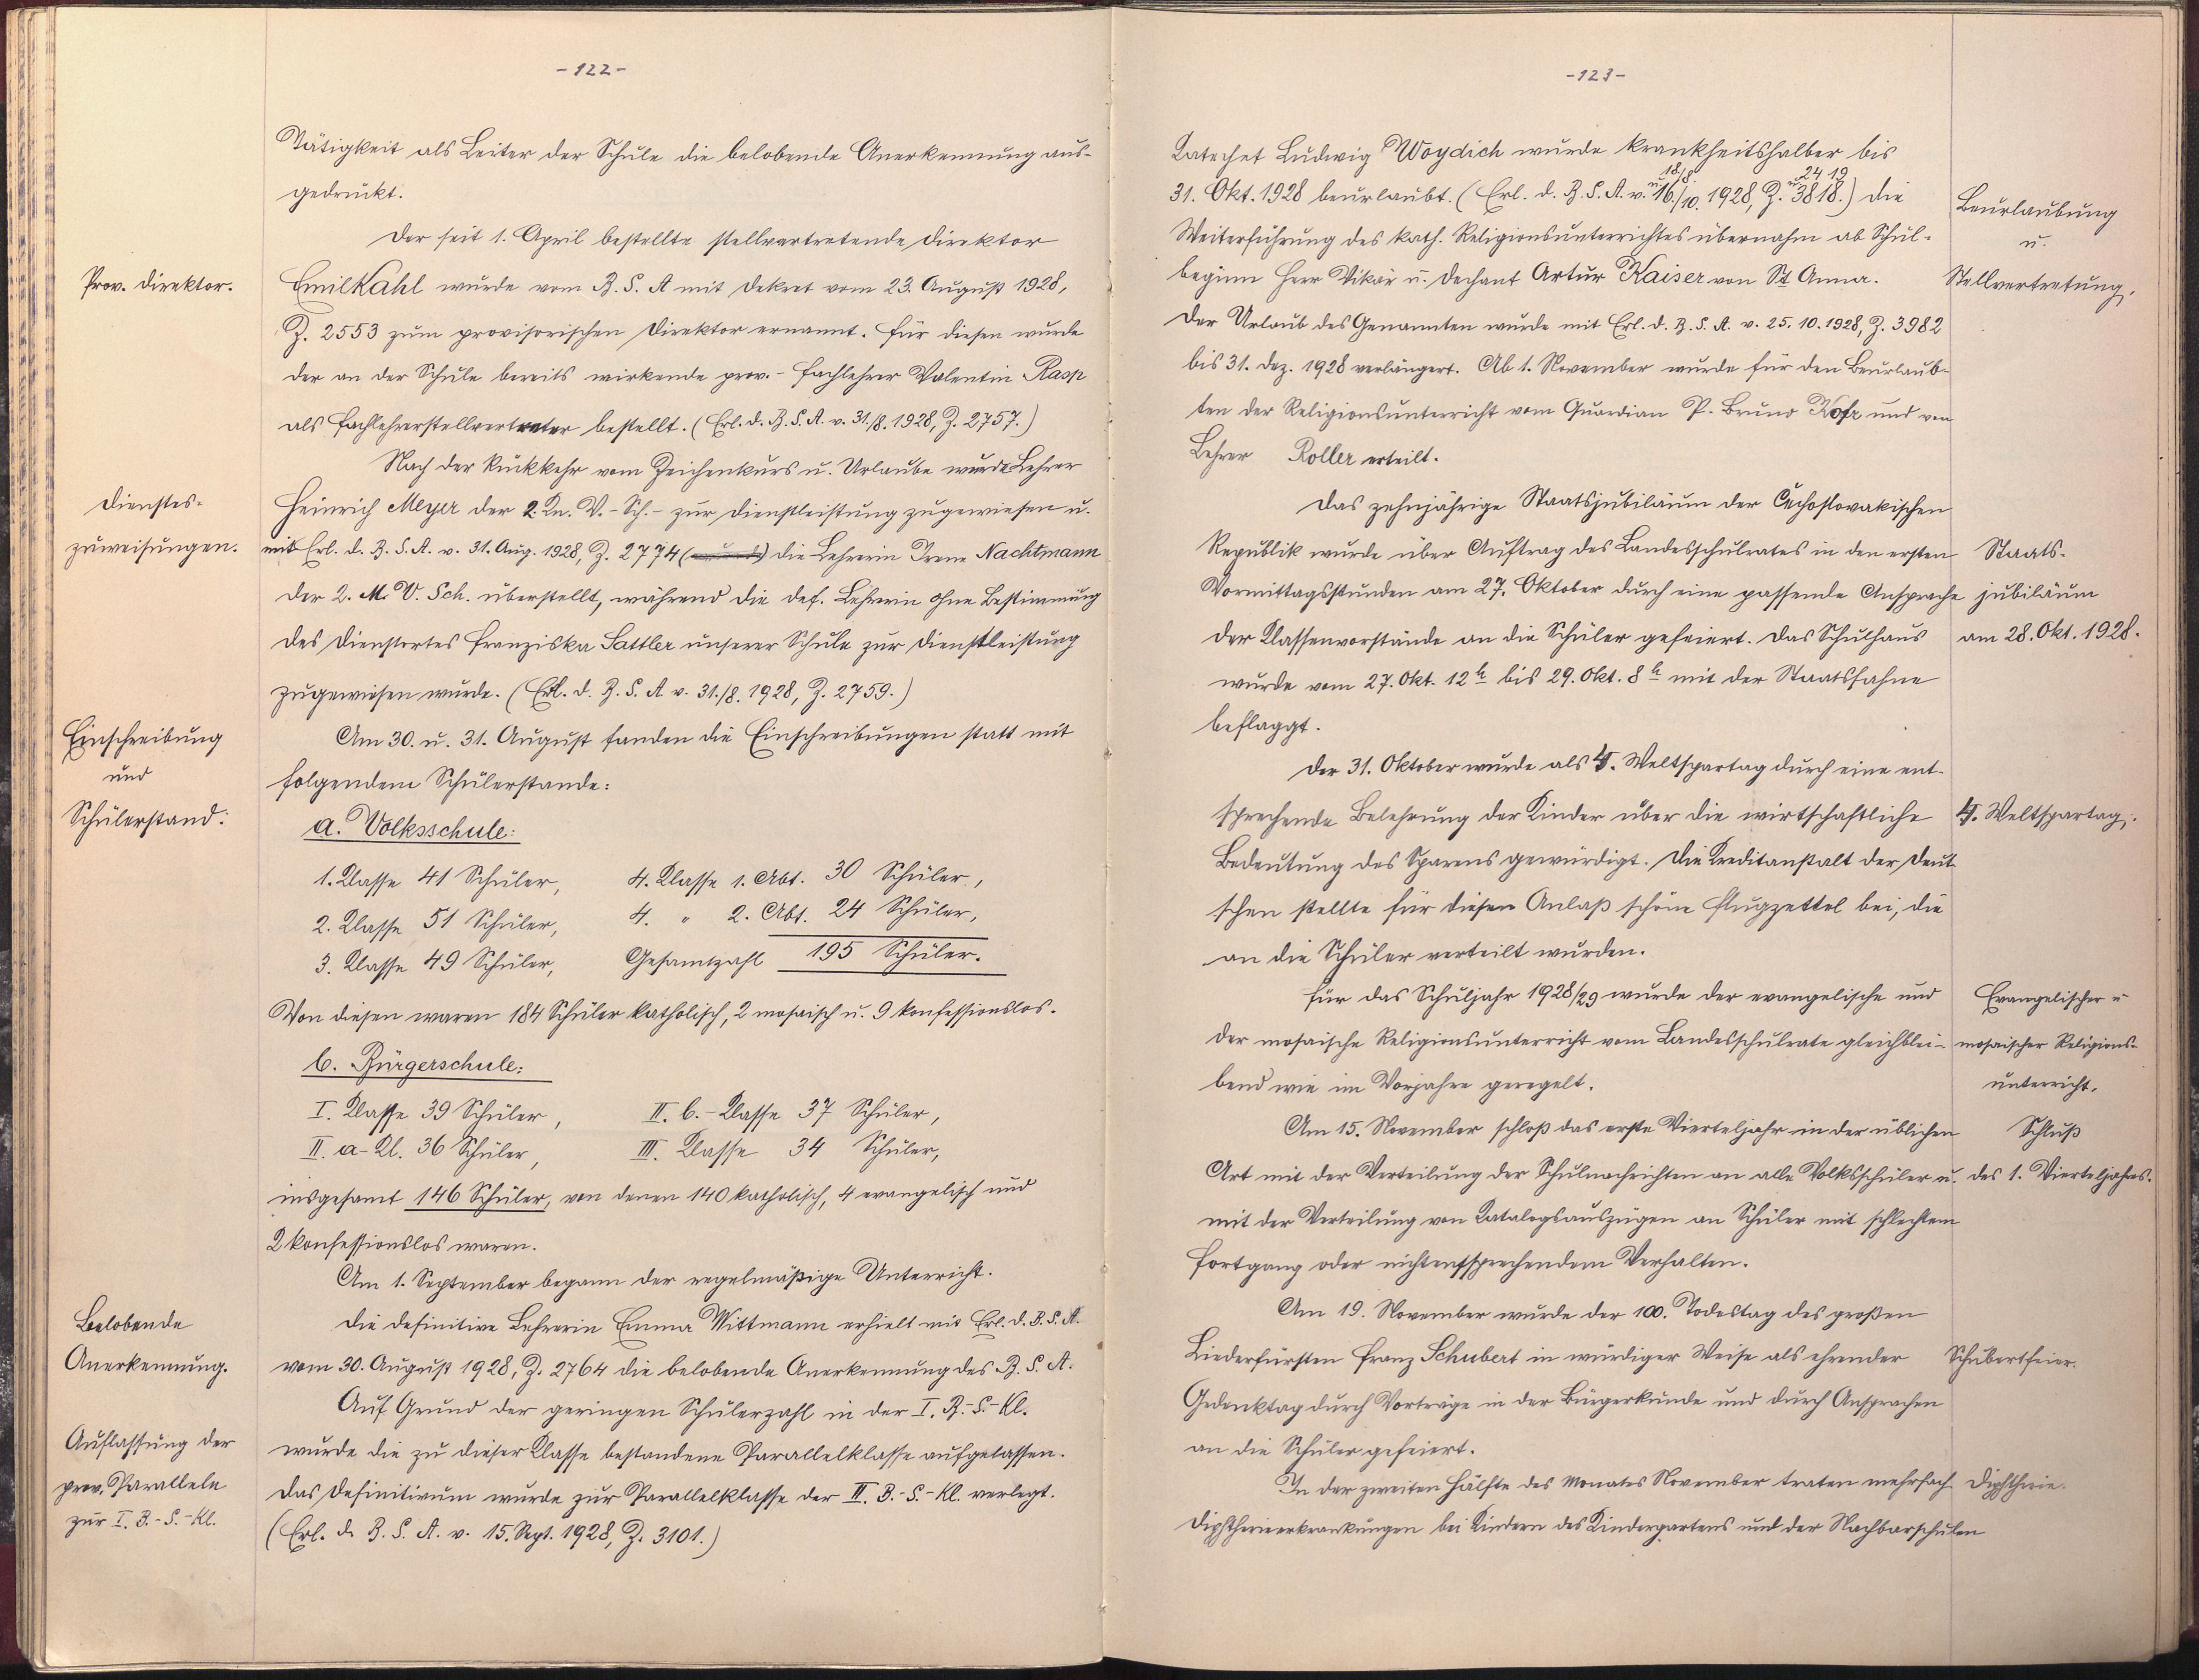 -122-
Tätigkeit als Leiter der Schule die belobende Anerkennung aus-
gedrückt.
Der seit 1. April bestellte stellvertretende Direktor
Prov. Direktor.
Emil Kahl wurde vom B. S. A mit Dekret vom 23. August 1928,
Z. 2553 zum provisorischen Direktor ernannt. Für diesen wurde
der an der Schule bereits wirkende prov.- Fachlehrer Valentin Rasp
als Fachlehrerstellvertreter bestellt. (Erl. d. B. S. A. v. 31./8. 1928, Z. 2757.)
Nach der Rückkehr vom Zeichenkurs u. Urlaube wurde Lehrer
Dienstes-
zuweisungen.
Heinrich Meyer der 2. Kn. V.-Sch.- zur Dienstleistung zugewiesen u.
mit Erl. d. B. S. A. v. 31. Aug. 1928, Z. 2774 die Lehrerin Irene Nachtmann
der 2. M. V. Sch. überstellt, während die def. Lehrerin ohne Bestimmung
des Dienstortes Franziska Sattler unserer Schule zur Dienstleistung
zugewiesen wurde. (Erl. d. B. S. A v. 31./8. 1928, Z. 2759.)
Einschreibung
und
Schülerstand:
Am 30. u. 31. August fanden die Einschreibungen statt mit
folgendem Schülerstande:
a. Volksschule:
1. Klasse 41 Schüler, 4. Klasse 1. Abt. 30 Schüler,
2. Klasse 51 Schüler, 4. " 2. Abt. 24 Schüler,
3. Klasse 49 Schüler, Gesamtzahl 195 Schüler.
Von diesen waren 184 Schüler katholisch, 2 mosaisch u. 9 konfessionslos.
b. Bürgerschule:
I. Klasse 39 Schüler, II. b.-Klasse 37 Schüler,
II. a-Kl. 36 Schüler, III. Klasse 34 Schüler,
insgesamt 146 Schüler, von denen 140 katholisch, 4 evangelisch und
2 konfessionslos waren.
Am 1. September begann der regelmäßige Unterricht.
Belobende
Anerkennung.
Die definitive Lehrerin Emma Wittmann erhielt mit Erl. d. B. S. A.
vom 30. August 1928, Z. 2764 die belobende Anerkennung des B. S. A.
Auf Grund der geringen Schülerzahl in der I. B.-S.-Kl.
Auflassung der
prov. Parallele
zur I. B.-S.-Kl.
wurde die zu dieser Klasse bestandene Parallelklasse aufgelassen.
Das Definitivum wurde zur Parallelklasse der II. B.-S.-Kl. verlegt.
(Erl. d. B. S. A. v. 15. Sept. 1928, Z. 3101.)
-123-
Katechet Ludwig Woydich wurde krankheitshalber bis
31. Okt. 1928 beurlaubt. (Erl. d. B. S. A. v. 16./10. u. 18/8. 1928, Z. 3818. u. 24 19) Die
Beurlaubung
u.
Stellvertretung.
Weiterführung des kath. Religionsunterrichtes übernahm ab Schul-
beginn Herr Vikär u. Dechant Artur Kaiser von St Anna.
Der Urlaub des Genannten wurde mit Erl. d. B. S. A. v. 25. 10. 1928, Z. 3982
bis 31. Dez. 1928 verlängert. Ab 1. November wurde für den Beurlaub-
ten der Religionsunterricht vom Guardian P. Bruno Hofr und von
Lehrer Roller erteilt.
Das zehnjährige Staatsjubiläum der Čechoslovakischen
Republik wurde über Auftrag des Landesschulrates in den ersten
Staats-
jubiläum
am 28. Okt. 1928.
Vormittagsstunden am 27. Oktober durch eine passende Ansprache
der Klassenvorstände an die Schüler gefeiert. Das Schulhaus
wurde vom 27. Okt. 12 h bis 29. Okt. 8 h mit der Staatsfahne
beflaggt.
Der 31. Oktober wurde als 4. Weltspartag durch eine ent-
sprechende Belehrung der Kinder über die wirtschaftliche
4. Weltspartag.
Bedeutung des Sparens gewürdigt. Die Kreditanstalt der Deut-
schen stellte für diesen Anlaß schöne Flugzettel bei, die
an die Schüler verteilt wurden.
Für das Schuljahr 1928/29 wurde der evangelische und
Evangelischer u
mosaischer Religions-
unterricht.
der mosaische Religionsunterricht vom Landesschulrate gleichblei-
bend wie im Vorjahre geregelt.
Am 15. November schloß das erste Vierteljahr in der üblichen
Schluß
des 1. Vierteljahres.
Art mit der Verteilung der Schulnachrichten an alle Volksschüler u.
mit der Verteilung von Katalogsauszügen an Schüler mit schlechtem
Fortgang oder nichtentsprechendem Verhalten.
Am 19. November wurde der 100. Todestag des großen
Liederfürsten Franz Schubert in würdiger Weise als ehrender
Schubertfeier.
Gedenktag durch Vorträge in der Bürgerkunde und durch Ansprachen
an die Schüler gefeiert.
In der zweiten Hälfte des Monates November traten mehrfach
Diphtherie.
Diphtherieerkrankungen bei Kindern des Kindergartens und der Nachbarschulen